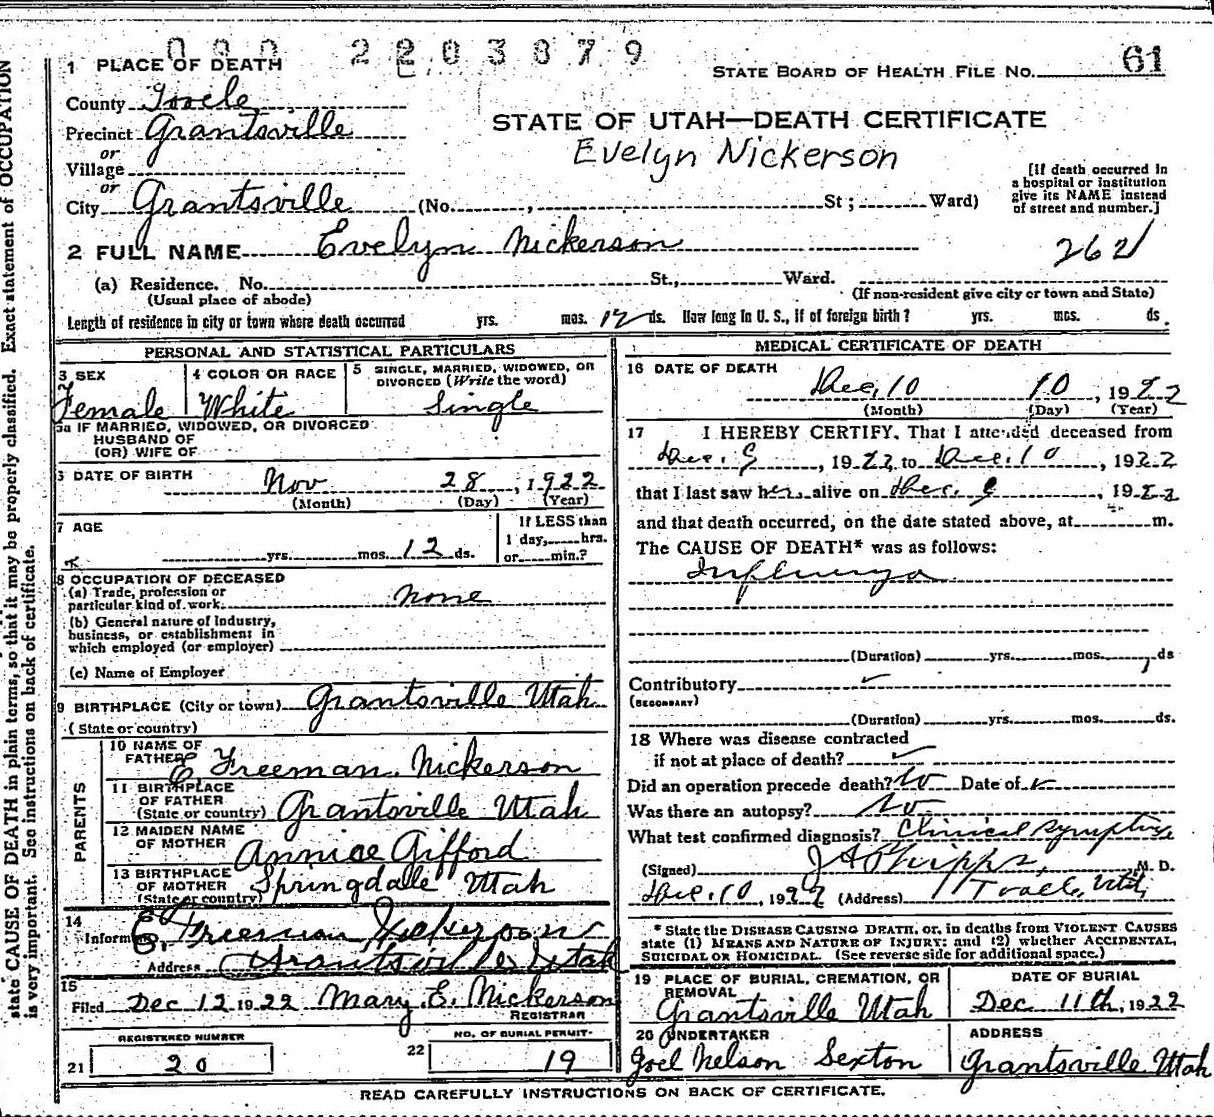 000 2203879
61
1 PLACE OF DEATH
STATE BOARD OF HEALTH FILE NO.
County Tooele
STATE OF UTAH—DEATH CERTIFICATE
Precinct Grantsville
Evelyn Nickerson
or
Village
[If death occurred in a hospital or institution give its NAME instead of street and number.]
or
City Grantsville (No. , St ; Ward)
2 FULL NAME Evelyn Nickerson
262
(a) Residence. No. St., Ward.
(Usual place of abode) (If non-resident give city or town and State)
Length of residence in city or town where death occurred yrs. mos. 12 ds. How long in U. S., if of foreign birth? yrs. mos. ds.
PERSONAL AND STATISTICAL PARTICULARS
3 SEX
Female
4 COLOR OR RACE
White
5 SINGLE, MARRIED, WIDOWED, OR DIVORCED (Write the word)
Single
5a IF MARRIED, WIDOWED, OR DIVORCED
HUSBAND OF
(OR) WIFE OF
DATE OF BIRTH Nov 28, 1922
(Month) (Day) (Year)
7 AGE
If LESS than
1 day, hrs.
yrs. mos. 12 ds. or min.?
8 OCCUPATION OF DECEASED
(a) Trade, profession or
particular kind of work. none
(b) General nature of Industry,
business, or establishment in
which employed (or employer)
(c) Name of Employer
9 BIRTHPLACE (City or town) Grantsville Utah
(State or country)
PARENTS
10 NAME OF
FATHER E. Freeman Nickerson
11 BIRTHPLACE
OF FATHER
(State or country) Grantsville Utah
12 MAIDEN NAME
OF MOTHER Annice Gifford
13 BIRTHPLACE
OF MOTHER
(State or country) Springdale Utah
14
Inform E. Freeman Nickerson
Address Grantsville Utah
15
Filed Dec 12 1922 Mary E. Nickerson
REGISTRAR
REGISTERED NUMBER
21 20
NO. OF BURIAL PERMIT
22 19
MEDICAL CERTIFICATE OF DEATH
16 DATE OF DEATH
Dec, 10 10, 1922
(Month) (Day) (Year)
17 I HEREBY CERTIFY, That I attended deceased from
Dec. 9, 1922 to Dec. 10, 1922
that I last saw her alive on Dec. 9, 1922
and that death occurred, on the date stated above, at m.
The CAUSE OF DEATH* was as follows:
Influenza
(Duration) yrs. mos. 1 ds
Contributory
(SECONDARY)
(Duration) yrs. mos. ds.
18 Where was disease contracted
if not at place of death?
Did an operation precede death? No Date of
Was there an autopsy? No
What test confirmed diagnosis? Clinical Symptoms
(Signed) J A Phipps, M. D.
Dec. 10, 1922 (Address) Tooele, Utah
* State the DISEASE CAUSING DEATH, or, in deaths from VIOLENT CAUSES
state (1) MEANS AND NATURE OF INJURY; and (2) whether ACCIDENTAL,
SUICIDAL OR HOMICIDAL. (See reverse side for additional space.)
19 PLACE OF BURIAL, CREMATION, OR
REMOVAL
Grantsville Utah
DATE OF BURIAL
Dec 11th, 1922
20 UNDERTAKER
Joel Nelson Sexton
ADDRESS
Grantsville Utah
READ CAREFULLY INSTRUCTIONS ON BACK OF CERTIFICATE.
state CAUSE OF DEATH in plain terms, so that it may be properly classified. Exact statement of OCCUPATION
is very important. See instructions on back of certificate.